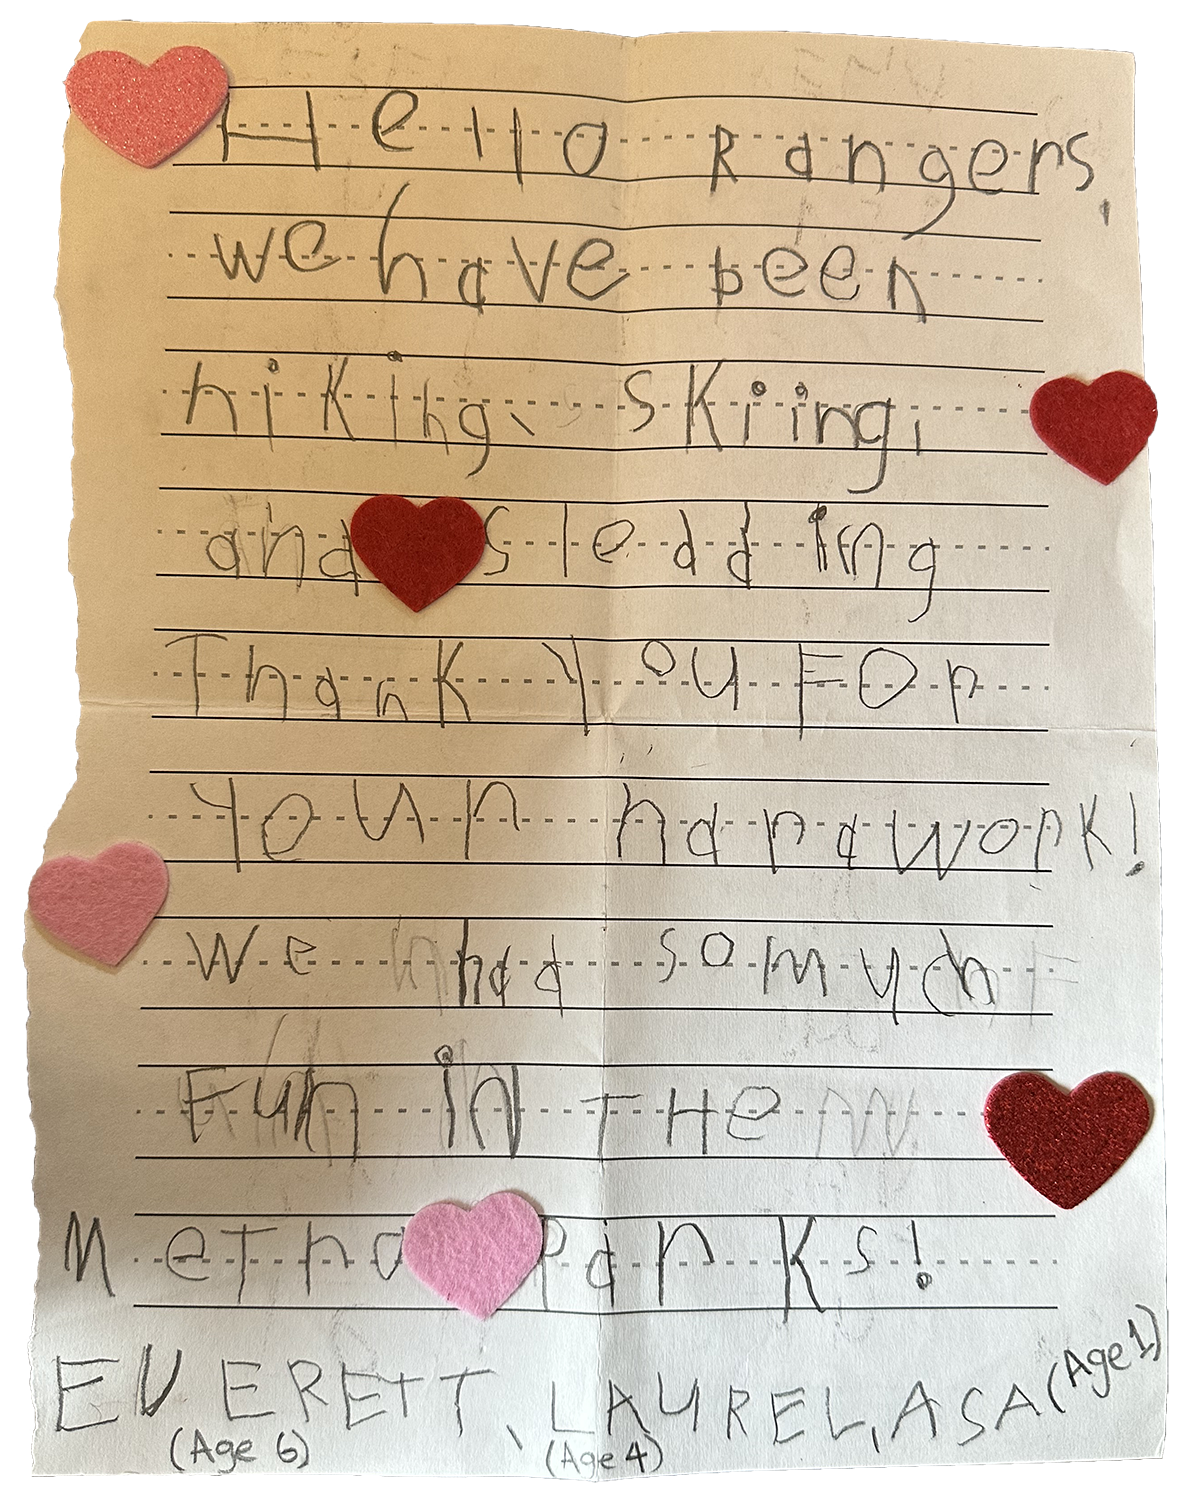 Hello Rangers,
we have been
hiking, skiing,
and sledding
Thank You For
Your hard work!
We had so much
Fun in THe
Metro Parks!
EVERETT, LAUREL, ASA (Age 1)
(Age 6) (Age 4)